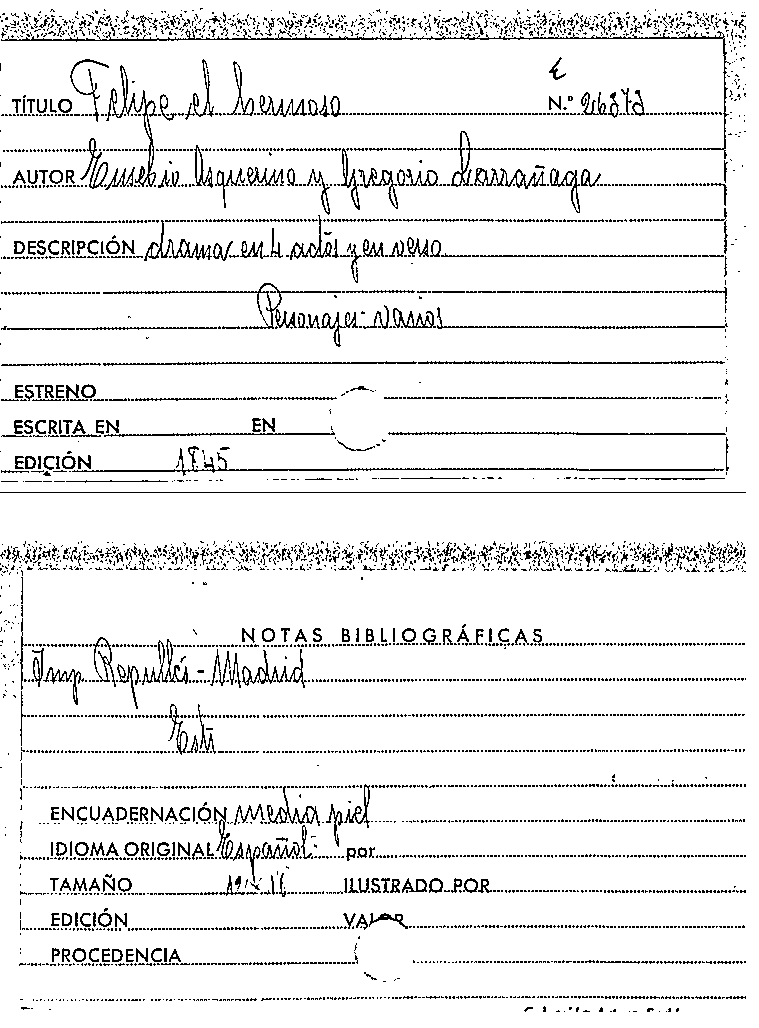 TÍTULO Felipe el hermoso N.º
AUTOR Eusebio Asquerino y Gregorio Larrañaga
DESCRIPCIÓN drama en 4 actos y en verso
Personajes - varios
ESTRENO
ESCRITA EN EN
EDICIÓN 1845
NOTAS BIBLIOGRÁFICAS
Imp Repullés - Madrid
ENCUADERNACIÓN media piel
IDIOMA ORIGINAL Español - por
TAMAÑO ILUSTRADO POR
EDICIÓN VALOR
PROCEDENCIA